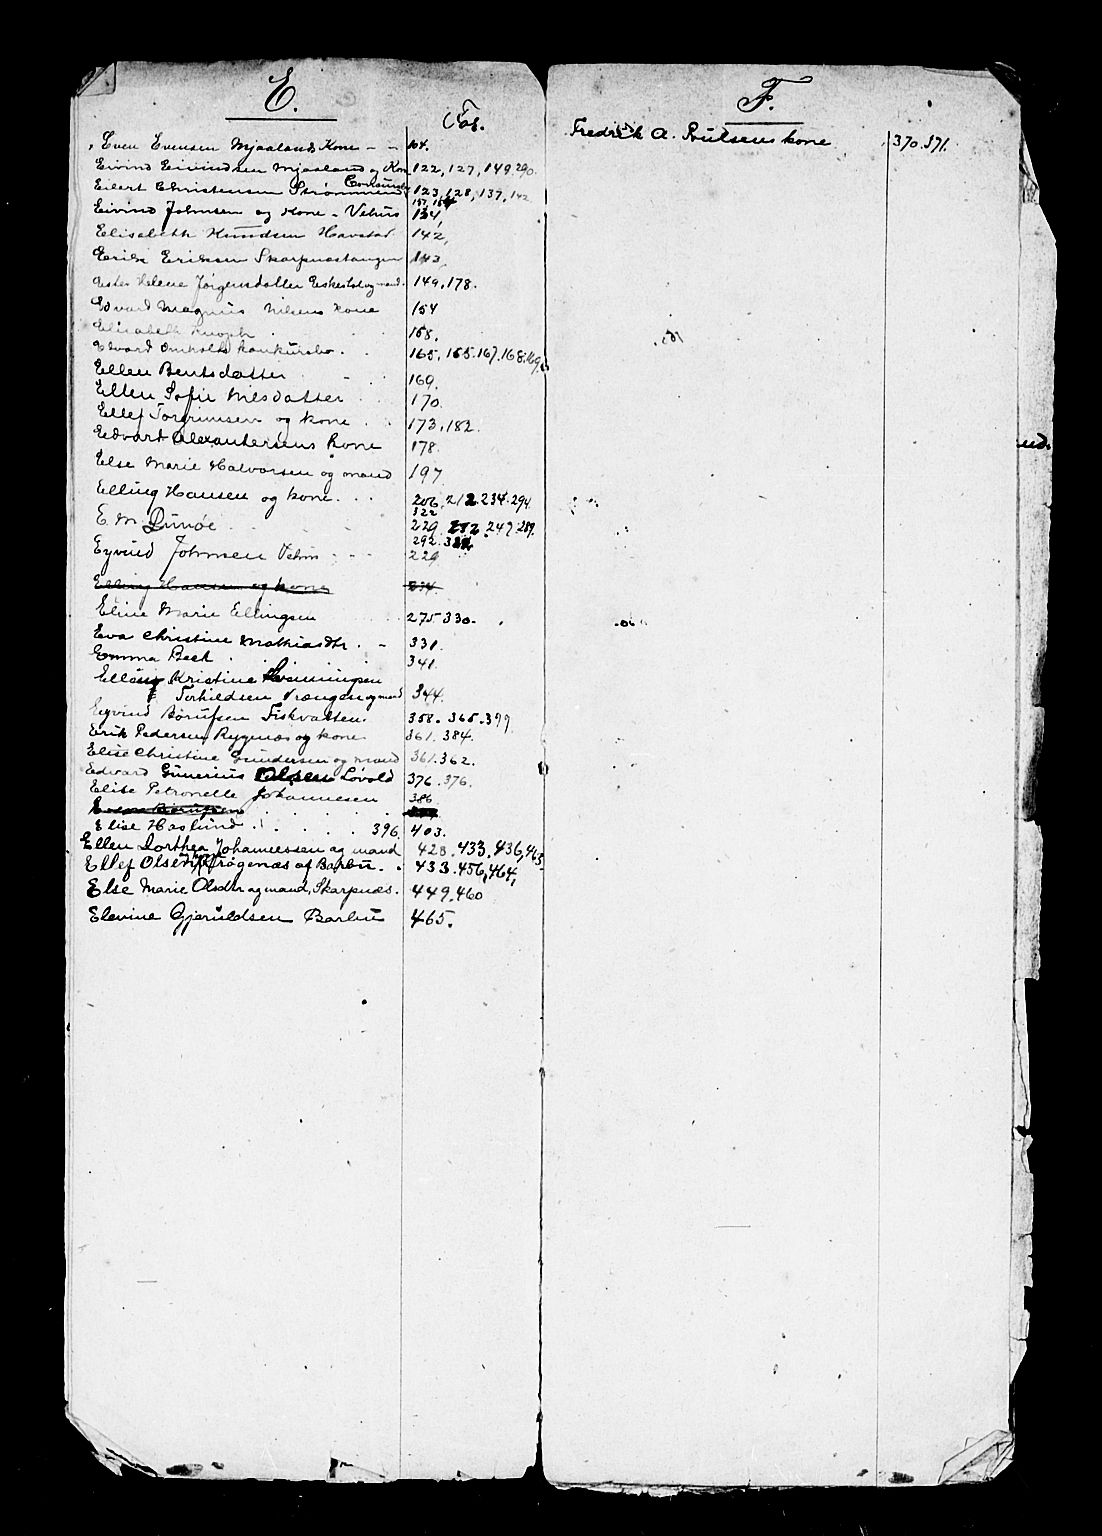 E.
Fol.
Even Evensen Mjaaland Kone - - 104.
Eivind Eivindsen Mjaaland og Kone 122, 127, 149, 290.
Eilert Christensen Strømmen 123, 128, 137, 142
157, 154
Eivind Johnsen og Kone - Vehus 134,
Elisabeth Knudsen Havstad. 142,
Erik Eriksen Skarpnestangen 143
Ester Helene Jørgensdatter Eskestøl og mand. 149, 178.
Edvard Magnus Nilsens kone 154
Elisabeth Knoph 158.
Edvard Omholts konkursbo. 165, 165. 167. 168. 169.
Ellen Bentsdatter 169.
Ellen Sofie Nilsdatter 170.
Ellef Torgrimsen og kone 173, 182.
Edvard Alexandersens kone 178.
Else Marie Halvorsen og mand 197
Elling Hansen og kone. 206, 212. 234. 294
322
E. M. Dunøe 229. 272. 247. 289.
292.
Eyvind Johnsen Vehus 229
Elling Hansen og kone 234.
Eline Marie Ellingsen 275. 330.
Eva Christine Mathiasdtr. - 331.
Emma Bech 341.
Kristine Henningsen
Torhildsen Vrængen og mand 344.
Eyvind Børufsen Fiskvatten. 358. 365. 379
Erik Pedersen Rygenæs og kone 361. 384.
Elise Christine Gundersen og mand 361. 362.
Edvard Gunerius Olsen Løvold 376. 376.
Elise Petronelle Johannesen 386
Elise Haslund 396. 403.
Ellen Dorthea Johannessen og mand 428. 433. 436, 443.
Ellef Olsen Trøgenæs af Barbu. 433. 456, 464,
Else Marie Olsdtr og mand, Skarpnæs. 449. 460
Elevine Gjeruldsen Barbu 465.
F.
Fredrik A. Poulsens kone 370. 371.